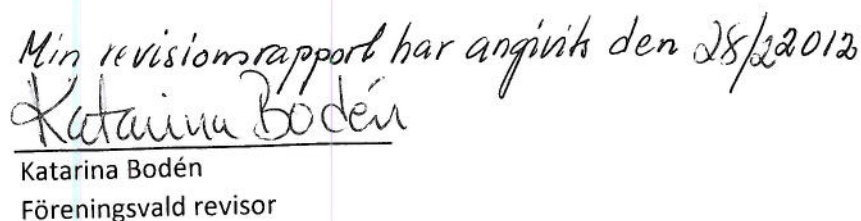 Min revisionsrapport har angivits den 28/2 2012
Katarina Bodén
Katarina Bodén
Föreningsvald revisor